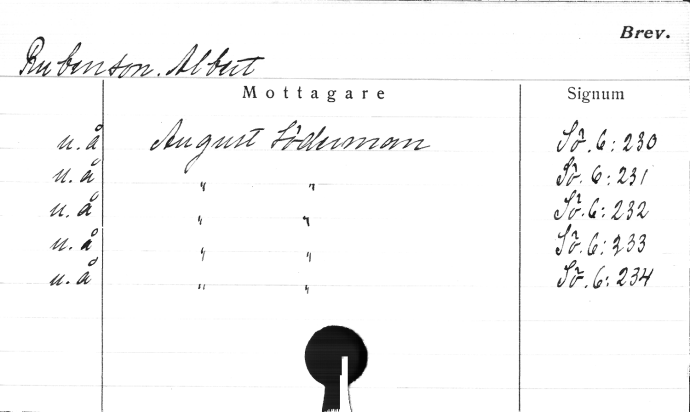 Brev.
Rubenson. Albert
Mottagare Signum
u.å August Söderman Sö. 6: 230
u.å " " Sö. 6: 231
u.å " " Sö. 6: 232
u.å " " Sö. 6: 233
u.å " " Sö. 6: 234